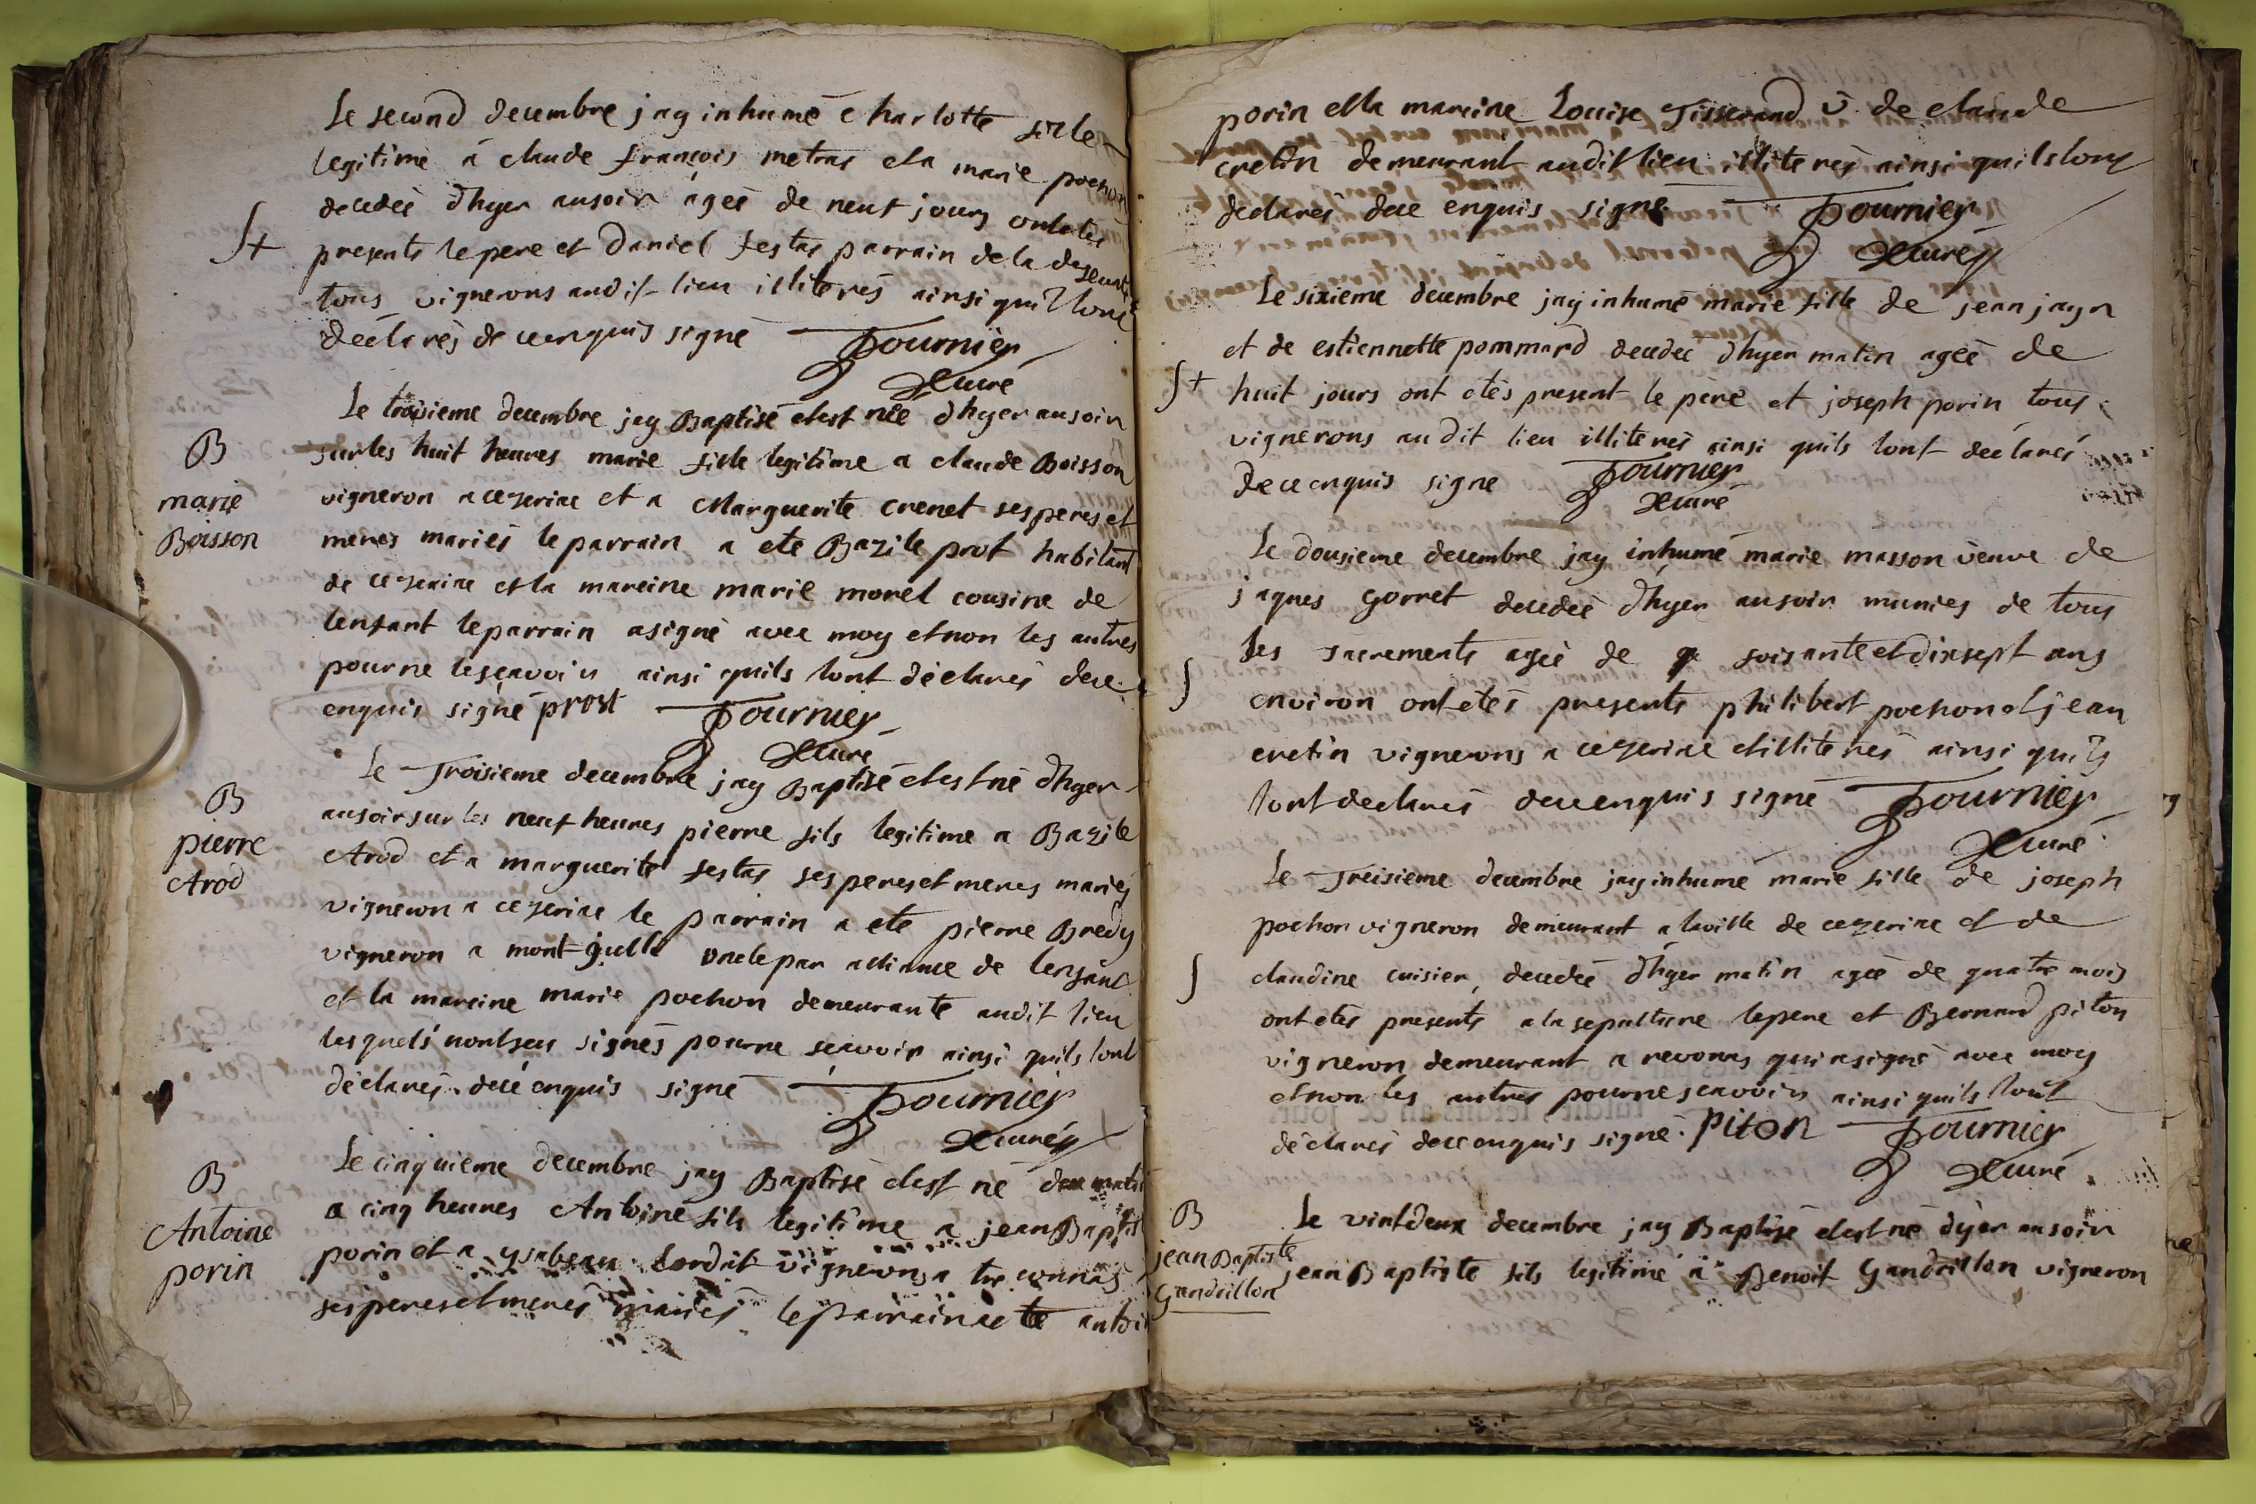 Le second decembre jay inhumé charlotte fille
legitime a claude françois metras et a marie pochon
decedeé dhyer ausoir ageé de neuf jours ont etés
S+
presents le pere et daniel festas parrain de la
tous vignerons audit lieu illiterés ainsi quil lont
déclarés de ce enquis signé Fournier
curé
B
marie
Boisson
Le troisieme decembre jay Baptisé et est née dhyer ausoir
sur les huit heures marie fille legitime a claude Boisson
vigneron a cezeriae et a Marguerite crenet ses peres et
meres mariés le parrain a eté Bazile prot habitant
de cezeriae et la mareine marie morel cousine de
lenfant le parrain a signé avec moy et non les autres
pour ne le sçavoir ainsi quils lont déclarés de ce
enquis signé prost Fournier
curé
B
pierre
Arod
Le Troisieme decembre jay Baptisé et est né dhyer
ausoir sur les neuf heures pierre fils legitime a Bazile
Arod et a marguerite festas ses peres et meres mariés
vigneron a cezeriae le parrain a eté pierre Bredy
vigneron a mont julle oncle par alliance de lenfant
et la mareine marie pochon demeurante audit lieu
les quels nont sçu signés pour ne sçavoir ainsi quils lont
déclarés de ce enquis signé Fournier
curé
B
Antoine
porin
Le cinquieme decembre jay Baptisé et est né de ce matin
a cinq heures Antoine fils legitime a jean Baptis
porin et a ysabeau vignerons a
ses peres et meres mariés le parrain a eté antoi
porin et la mareine Louise Tisserand v. de claude
cretin demeurant audit lieu illiterés ainsi quils lont
declarés de ce enquis signé Fournier
curé
Le sixieme decembre jay inhumé marie fille de jean jayr
et de estiennette pommard decedeé dhyer matin ageé de
S+
huit jours ont etés present le père et joseph porin tous
vignerons au dit lieu illiterés ainsi quils lont déclarés
de ce enquis signé Fournier
curé
Le dousieme decembre jay inhumé marie masson veuve de
jaques gorret decedeé dhyer ausoir munies de tous
les sacrements ageé de soisante et dixsept ans
S
environ ont etés presents philibert pochon et jean
cretin vignerons a cezeriae et illiterés ainsi quils
lont declarés de ce enquis signé Fournier
curé
Le Treisieme decembre jay inhumé marie fille de joseph
pochon vigneron demeurant a la ville de cezeriae et de
S
claudine cuisier, decedeé dhyer matin ageé de quatre mois
ont etés presents a la sepulture le pere et Bernard piton
vigneron demeurant a revonas qui a signé avec moy
et non les autres pour ne sçavoir ainsi quils lont
déclarés de ce enquis signé. Piton Fournier
curé
B
jean Baptiste
Gandrillon
Le vintdeux decembre jay Baptisé et est né dyer ausoir
jean Baptiste fils legitime a Benoit Gandrillon vigneron